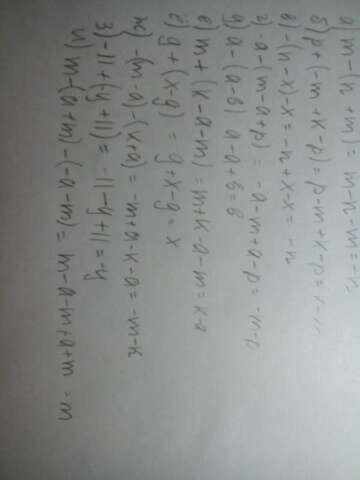 а) m-(n+m)=m-n-m=-n
б) p+(-m+k-p)=p-m+k-p=k-m
в) -(n-x)-x=-n+x-x=-n
г) -a-(m-a+p)=-a-m+a-p=-m-p
д) a-(a-b) a-a+b=b
е) m+(k-a-m)=m+k-a-m=k-a
ё) y+(x-y)=y+x-y=x
ж) -(m-a)-(k+a)=-m+a-k-a=-m-k
з) -11+(-y+11)=-11-y+11=-y
и) m-(a+m)-(-a-m)=m-a-m+a+m=m